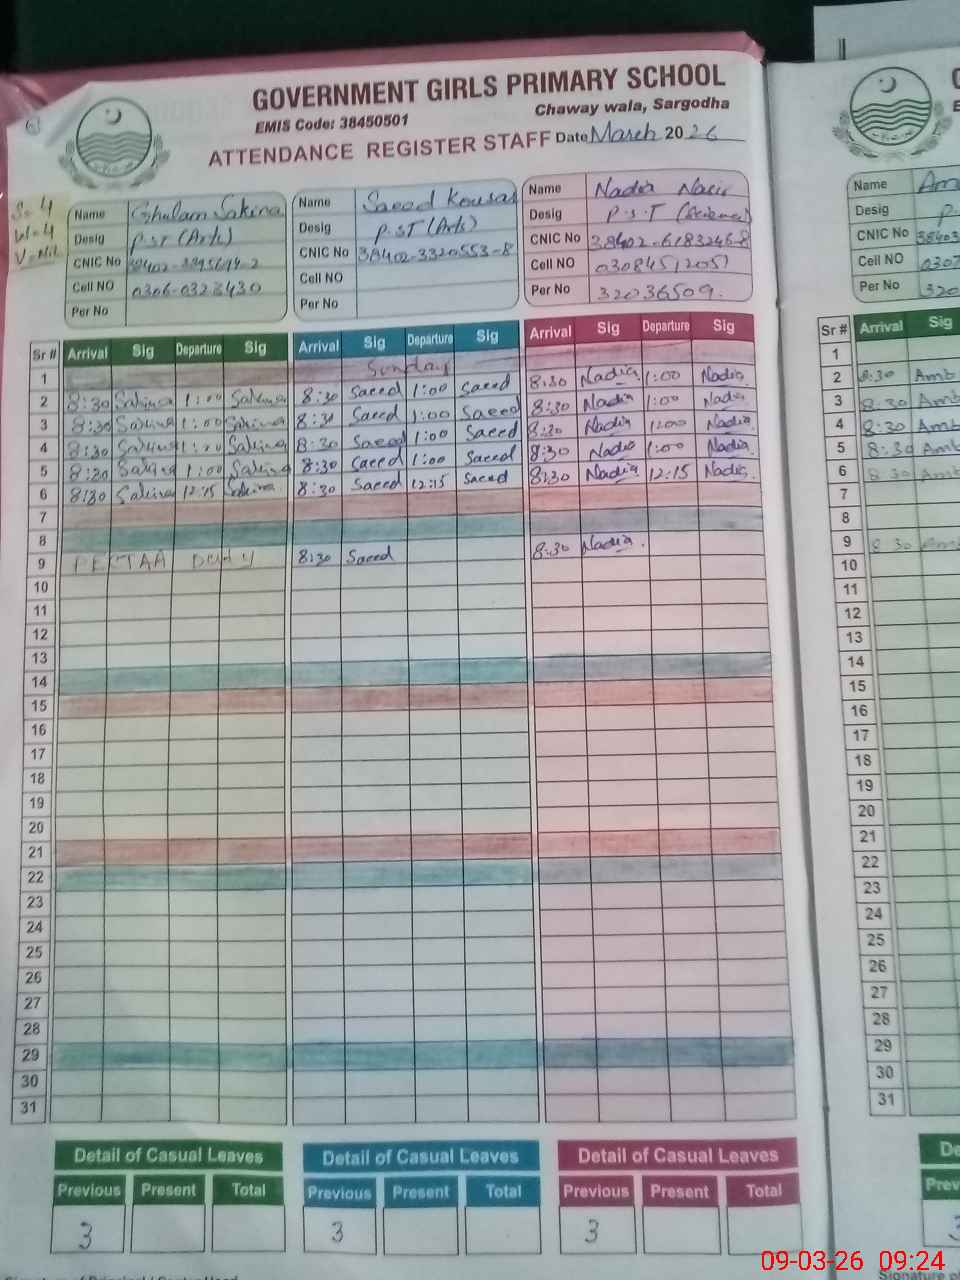 GOVERNMENT GIRLS PRIMARY SCHOOL
Chaway wala, Sargodha
EMIS Code: 38450501
ATTENDANCE REGISTER STAFF Date March 2026
S= 4
W=4
V=Nil
Name Ghulam Sakina
Desig P.S.T (Arts)
CNIC No
Cell NO 0306-0323430
Per No
Name Saeed Kousar
Desig P.ST (Arts)
CNIC No 38402-3320553-8
Cell NO
Per No
Name Nadia Nasir
Desig P.S.T (Science)
CNIC No 38402-6183246-8
Cell NO 03084512051
Per No 32036509.
Sr # Arrival Sig Departure Sig Arrival Sig Departure Sig Arrival Sig Departure Sig
1 Sunday
2 8:30 Sakina 1:00 Sakina 8:30 Saeed 1:00 Saeed 8:30 Nadia 1:00 Nadia
3 8:30 Sakina 1:00 Sakina 8:30 Saeed 1:00 Saeed 8:30 Nadia 1:00 Nadia
4 8:30 Sakina 1:00 Sakina 8:30 Saeed 1:00 Saeed 8:30 Nadia 1:00 Nadia
5 8:30 Sakina 1:00 Sakina 8:30 Saeed 1:00 Saeed 8:30 Nadia 1:00 Nadia
6 8:30 Sakina 12:15 Sakina 8:30 Saeed 12:15 Saeed 8:30 Nadia 12:15 Nadia
7
8
9 PECTAA Duty 8:30 Saeed 8:30 Nadia
10
11
12
13
14
15
16
17
18
19
20
21
22
23
24
25
26
27
28
29
30
31
Detail of Casual Leaves Detail of Casual Leaves Detail of Casual Leaves
Previous Present Total Previous Present Total Previous Present Total
3 3 3
Name
Desig
CNIC No
Cell NO
Per No
Sr # Arrival Sig
1
2 8:30 Amb
3 8:30 Amb
4 8:30 Amb
5 8:30 Amb
6 8:30 Amb
7
8
9 8:30 Amb
10
11
12
13
14
15
16
17
18
19
20
21
22
23
24
25
26
27
28
29
30
31
09-03-26 09:24
Signature of